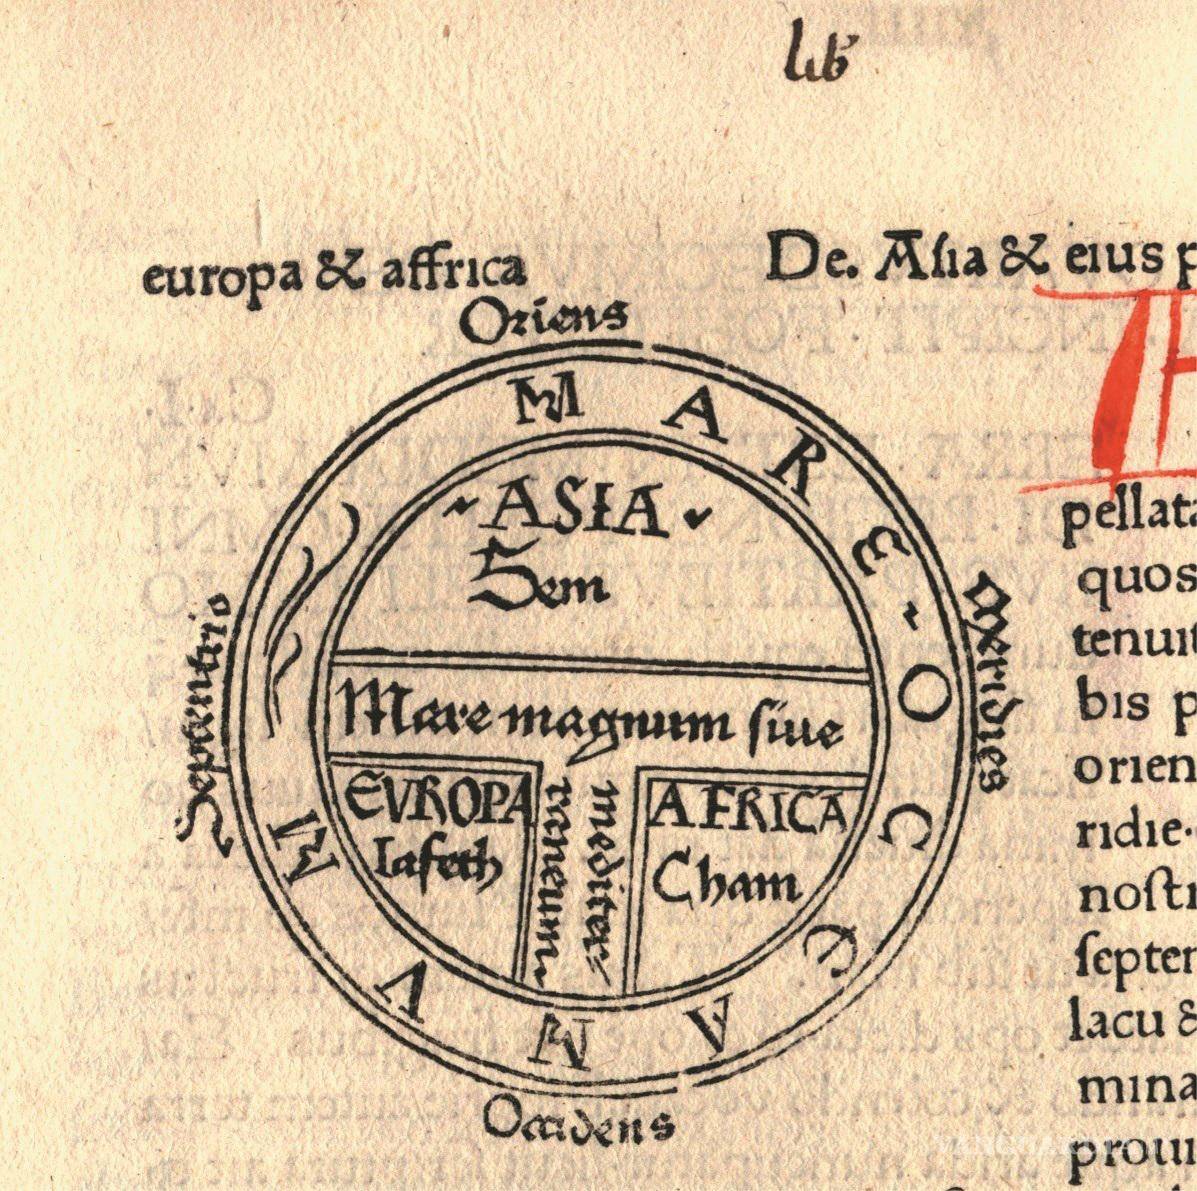 lib
europa & affrica
De. Asia & eius p
Oriens
MARE~OCEANUM
~ASIA~
Sem
Septentrio
Meridies
Mare magnum siue
mediter
raneum
EVROPA
Iafeth
AFRICA
Cham
Occidens
pellata
quos
tenuit
bis p
orien
ridie.
nostr
septen
lacu &
mina
proui